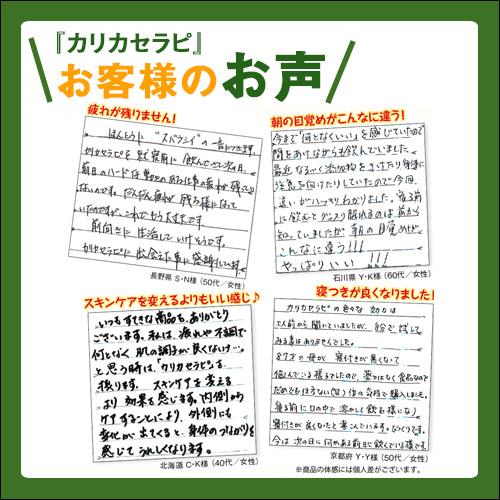 『カリカセラピ』
お客様のお声
疲れが残りません!
ほんとうに "スバラシイ" の一言につきます。
カリカセラピを 就寝前に 飲んでさて次の日、
前日のハードな
ないのです。だんだん疲れが 残る様になって
いたのですが、これでもう大丈夫です。
前向きに 生活していけそうです。
カリカセラピに 出会えた事に感謝しています。
長野県 S・N様(50代/女性)
朝の目覚めがこんなに違う!
今まで"何となくいい"を感じていたので
間をあけながらも飲んでいました。
最近 なるべく添加物をさけたり身体に
注意を向けたりしていたので今回
違いがハッキリわかりました。寝る前
に飲むとグッスリ眠れるのは前から
知っていましたが 朝の目覚めが
こんなに違う!!!
やっぱりいい !!!
石川県 Y・K様(60代/女性)
スキンケアを変えるよりもいい感じ♪
いつもすてきな商品を、ありがとう
ございます。私は、疲れや不調で
何となく 肌の調子が良くないナ…。
と思う時は、「カリカセラピ」を
摂ります。 スキンケアを変える
より 効果を感じます。内側から
ケアすることにより、外側にも
変化が出てくると、身体のつながりを
感じて うれしくなります。
北海道 C・K様(40代/女性)
寝つきが良くなりました!
カリカセラピの色々な 効力は
以前から聞いていましたが、自分で試して
みる事はありませんでした。
87才の母が 寝付きが悪くなって
悩んでいる様子でしたので、薬ではなく食品なので
だめでも仕方ない(笑)位の気持で購入しました。
寝る前に口の中で溶かして飲む様になり
寝付きが良くなったと喜んでいます。びっくりです。
今は 次の日に何かある前日に飲んでいる様です。
京都府 Y・Y様(50代/女性)
※商品の体感には個人差がございます。